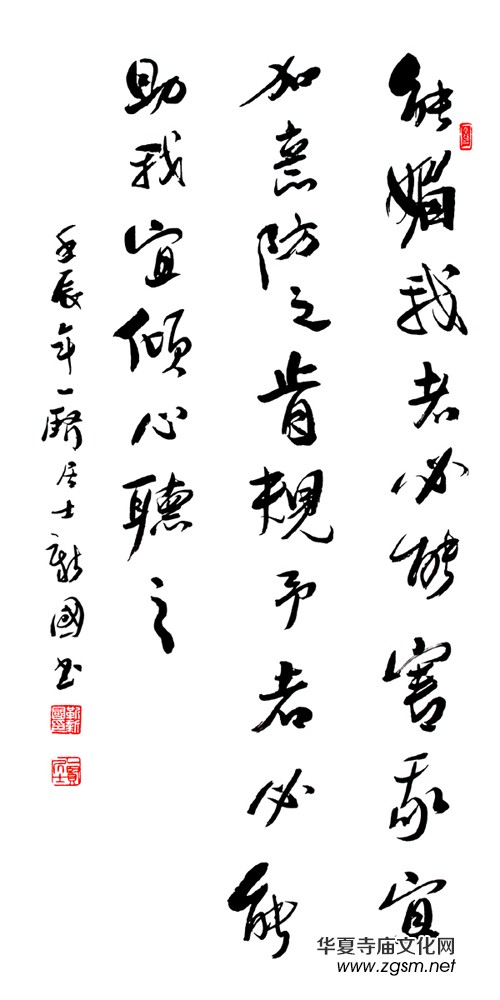 能媚我者必能害我宜
加意防之肯規予者必能
助我宜傾心聽之
壬辰年一賢居士新國书
华夏寺庙文化网
www.zgsm.net